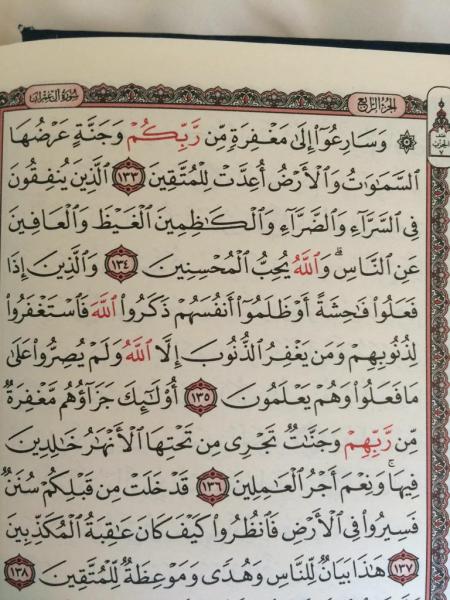 الجزء الرابع
سورة آل عمران
۞ وَسَارِعُوٓا۟ إِلَىٰ مَغْفِرَةٍ مِّن رَّبِّكُمْ وَجَنَّةٍ عَرْضُهَا
ٱلسَّمَٰوَٰتُ وَٱلْأَرْضُ أُعِدَّتْ لِلْمُتَّقِينَ ١٣٣ ٱلَّذِينَ يُنفِقُونَ
فِى ٱلسَّرَّآءِ وَٱلضَّرَّآءِ وَٱلْكَٰظِمِينَ ٱلْغَيْظَ وَٱلْعَافِينَ
عَنِ ٱلنَّاسِ ۗ وَٱللَّهُ يُحِبُّ ٱلْمُحْسِنِينَ ١٣٤ وَٱلَّذِينَ إِذَا
فَعَلُوا۟ فَٰحِشَةً أَوْ ظَلَمُوٓا۟ أَنفُسَهُمْ ذَكَرُوا۟ ٱللَّهَ فَٱسْتَغْفَرُوا۟
لِذُنُوبِهِمْ وَمَن يَغْفِرُ ٱلذُّنُوبَ إِلَّا ٱللَّهُ وَلَمْ يُصِرُّوا۟ عَلَىٰ
مَا فَعَلُوا۟ وَهُمْ يَعْلَمُونَ ١٣٥ أُو۟لَٰٓئِكَ جَزَآؤُهُم مَّغْفِرَةٌ
مِّن رَّبِّهِمْ وَجَنَّٰتٌ تَجْرِى مِن تَحْتِهَا ٱلْأَنْهَٰرُ خَٰلِدِينَ
فِيهَا ۚ وَنِعْمَ أَجْرُ ٱلْعَٰمِلِينَ ١٣٦ قَدْ خَلَتْ مِن قَبْلِكُمْ سُنَنٌ
فَسِيرُوا۟ فِى ٱلْأَرْضِ فَٱنظُرُوا۟ كَيْفَ كَانَ عَٰقِبَةُ ٱلْمُكَذِّبِينَ
١٣٧ هَٰذَا بَيَانٌ لِّلنَّاسِ وَهُدًى وَمَوْعِظَةٌ لِّلْمُتَّقِينَ ١٣٨